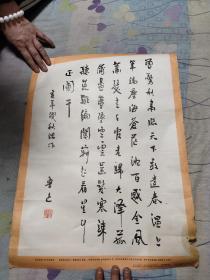 曾驚秋肅臨天下敢遣春溫上
筆端塵海蒼茫沉百感金風
蕭瑟走千官老歸大澤菰
蒲盡夢墜空雲齒髮寒竦
聽荒雞偏闃寂起看星斗
正闌干
亥年殘秋偶作
魯迅